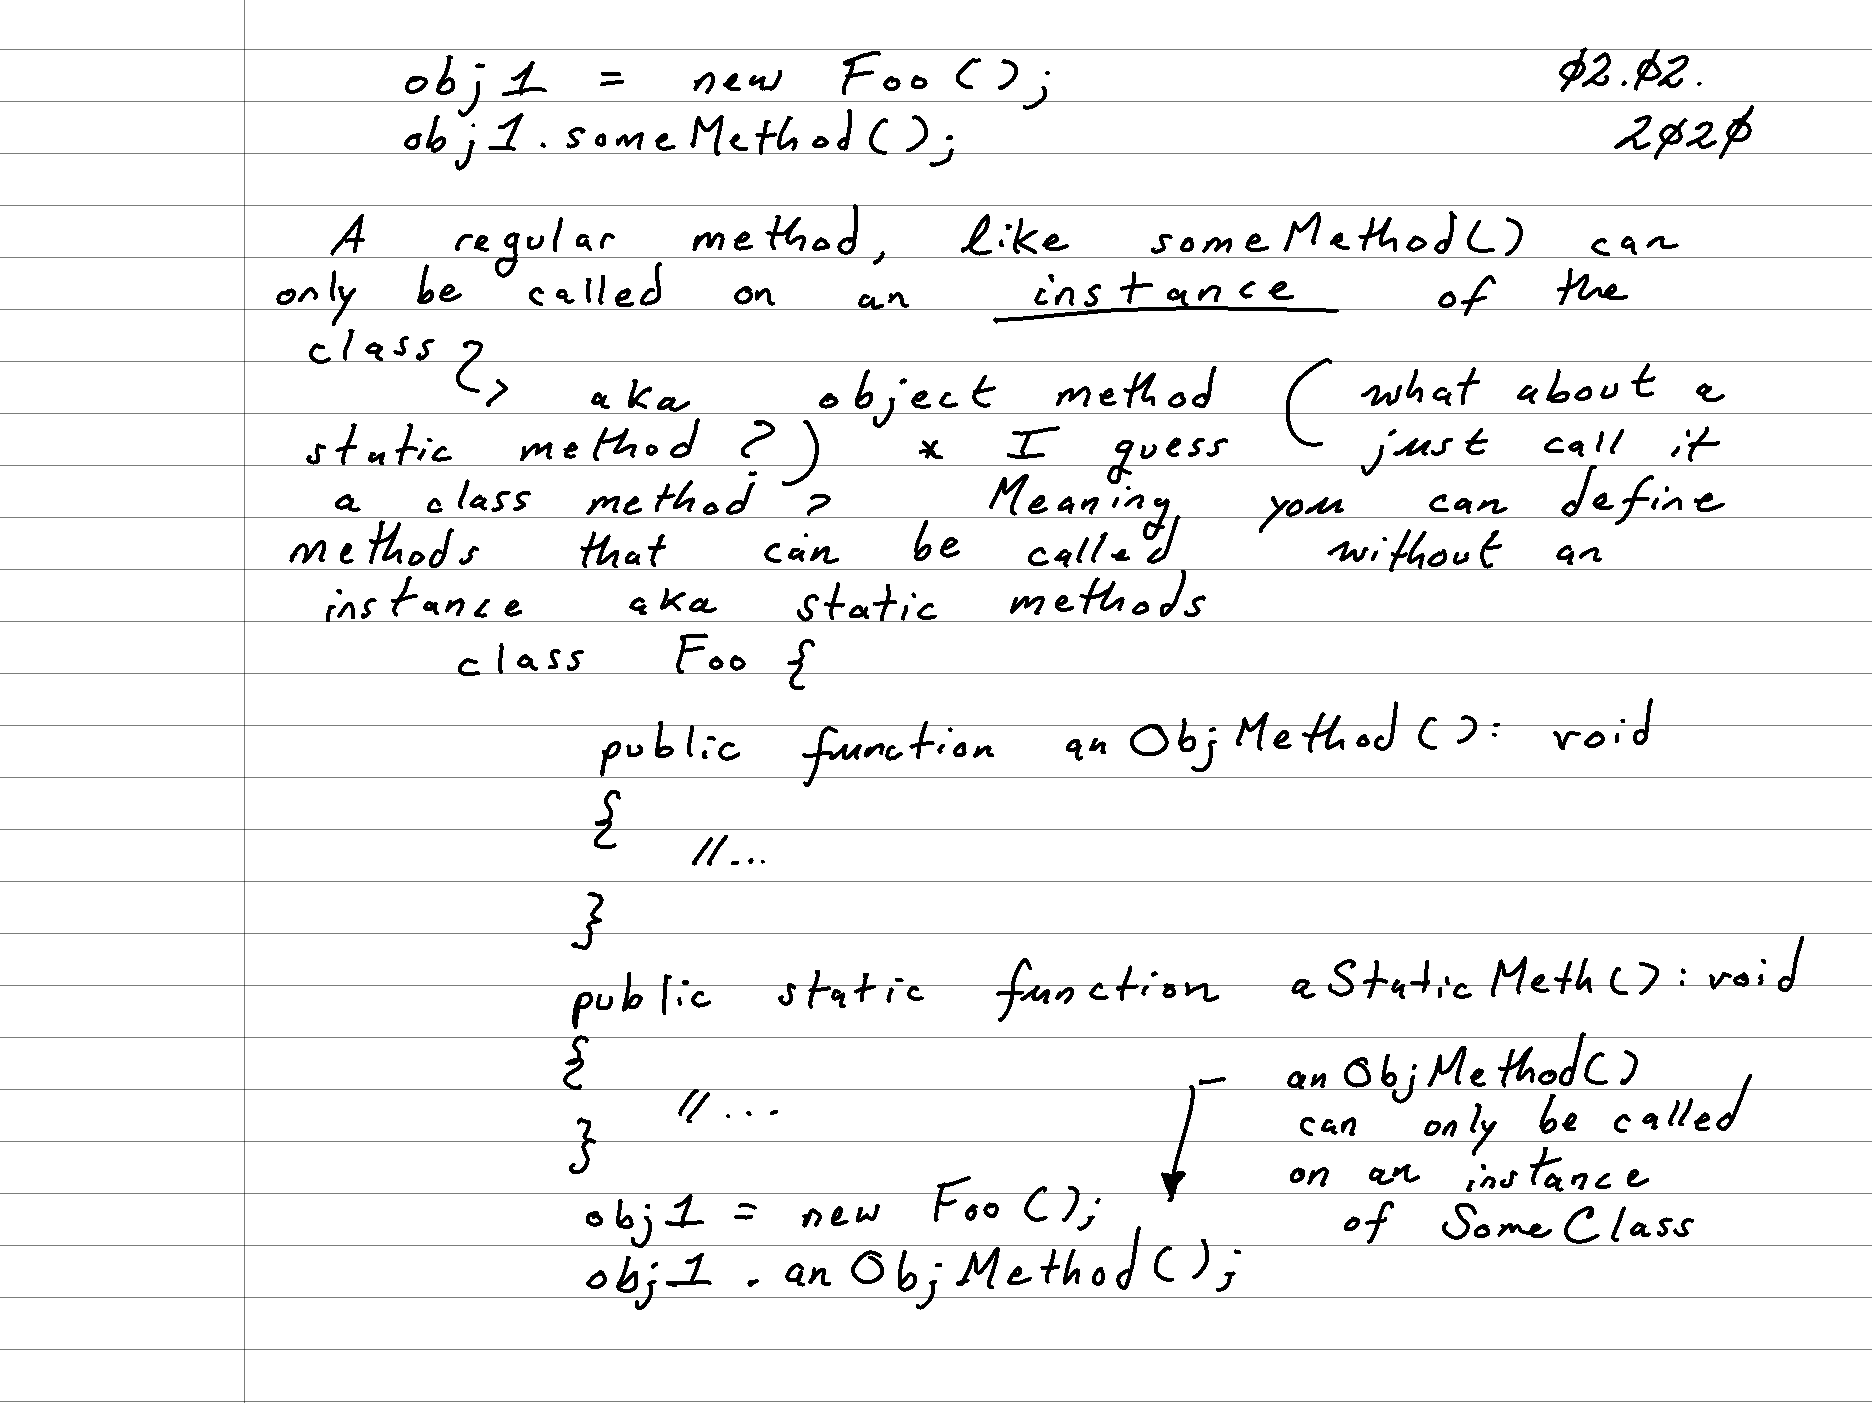 obj1 = new Foo();
ø2.ø2.
obj1.someMethod();
2ø2ø
A regular method, like someMethod() can
only be called on an instance of the
class
aka object method (what about a
static method?) * I guess just call it
a class method? Meaning you can define
methods that can be called without an
instance aka static methods
class Foo {
public function anObjMethod(): void
{
//...
}
public static function aStaticMeth(): void
{
//...
}
anObjMethod()
can only be called
on an instance
of SomeClass
obj1 = new Foo();
obj1.anObjMethod();